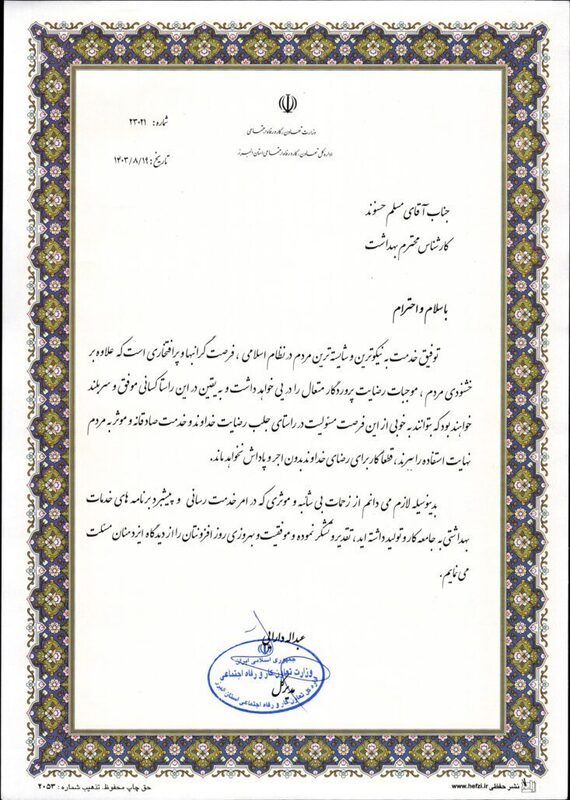 شماره: ۲۳۰۲۱
وزارت تعاون، کار و رفاه اجتماعی
اداره کل تعاون، کار و رفاه اجتماعی استان البرز
تاریخ: ۱۴۰۳/۸/۱۹
جناب آقای مسلم حسنوند
کارشناس محترم بهداشت
باسلام و احترام
توفیق خدمت به نیکوترین و شایسته ترین مردم در نظام اسلامی ، فرصت گرانبها و پرافتخاری است که علاوه بر
خشنودی مردم ، موجبات رضایت پروردگار متعال را در پی خواهد داشت و به یقین در این راستا کسانی موفق و سربلند
خواهند بود که بتوانند به خوبی از این فرصت مسئولیت در راستای جلب رضایت خداوند و خدمت صادقانه و موثر به مردم
نهایت استفاده را ببرند ، قطعا کار برای رضای خداوند بدون اجر و پاداش نخواهد ماند.
بدینوسیله لازم می دانم از زحمات بی شائبه و موثری که در امر خدمت رسانی و پیشبرد برنامه های خدمات
بهداشتی به جامعه کار و تولید داشته اید ، تقدیر و تشکر نموده و موفقیت و بهروزی روز افزونتان را از دیدگاه ایزد منان مسئلت
می نمایم.
عبداله دارابی
جمهوری اسلامی ایران
وزارت تعاون کار و رفاه اجتماعی
مدیرکل
تعاون کار و رفاه اجتماعی استان البرز
حق چاپ محفوظ. تذهیب شماره : ۲۰۵۳
نشر حفظی www.hefzi.ir